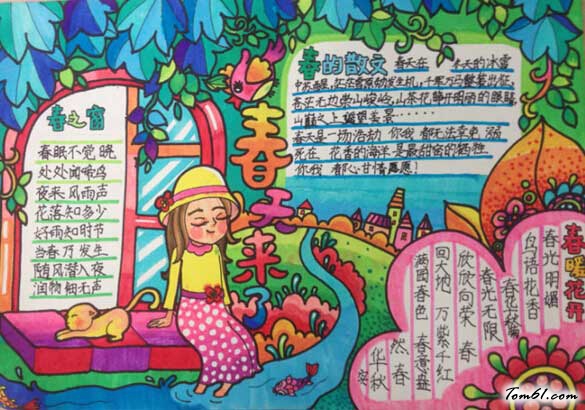 春之窗
春眠不觉晓
处处闻啼鸟
夜来风雨声
花落知多少
好雨知时节
当春乃发生
随风潜入夜
润物细无声
春天来了
春的散文
春天在 冬天的冰雪
千军万马整装出征
苍茫无边崇山峻岭，山茶花睁开明丽的眼睛
山巅之上 翘望美景……
春天是一场浩劫 你我 都无法幸免 溺
死在 花香的海洋 是最甜蜜的牺牲
你我 都心甘情愿！
春暖花开
春光明媚
鸟语花香
春光无限
欣欣向荣 春
回大地 万紫千红
满园春色 春意盎
然 春
华秋
实
Tom61.com